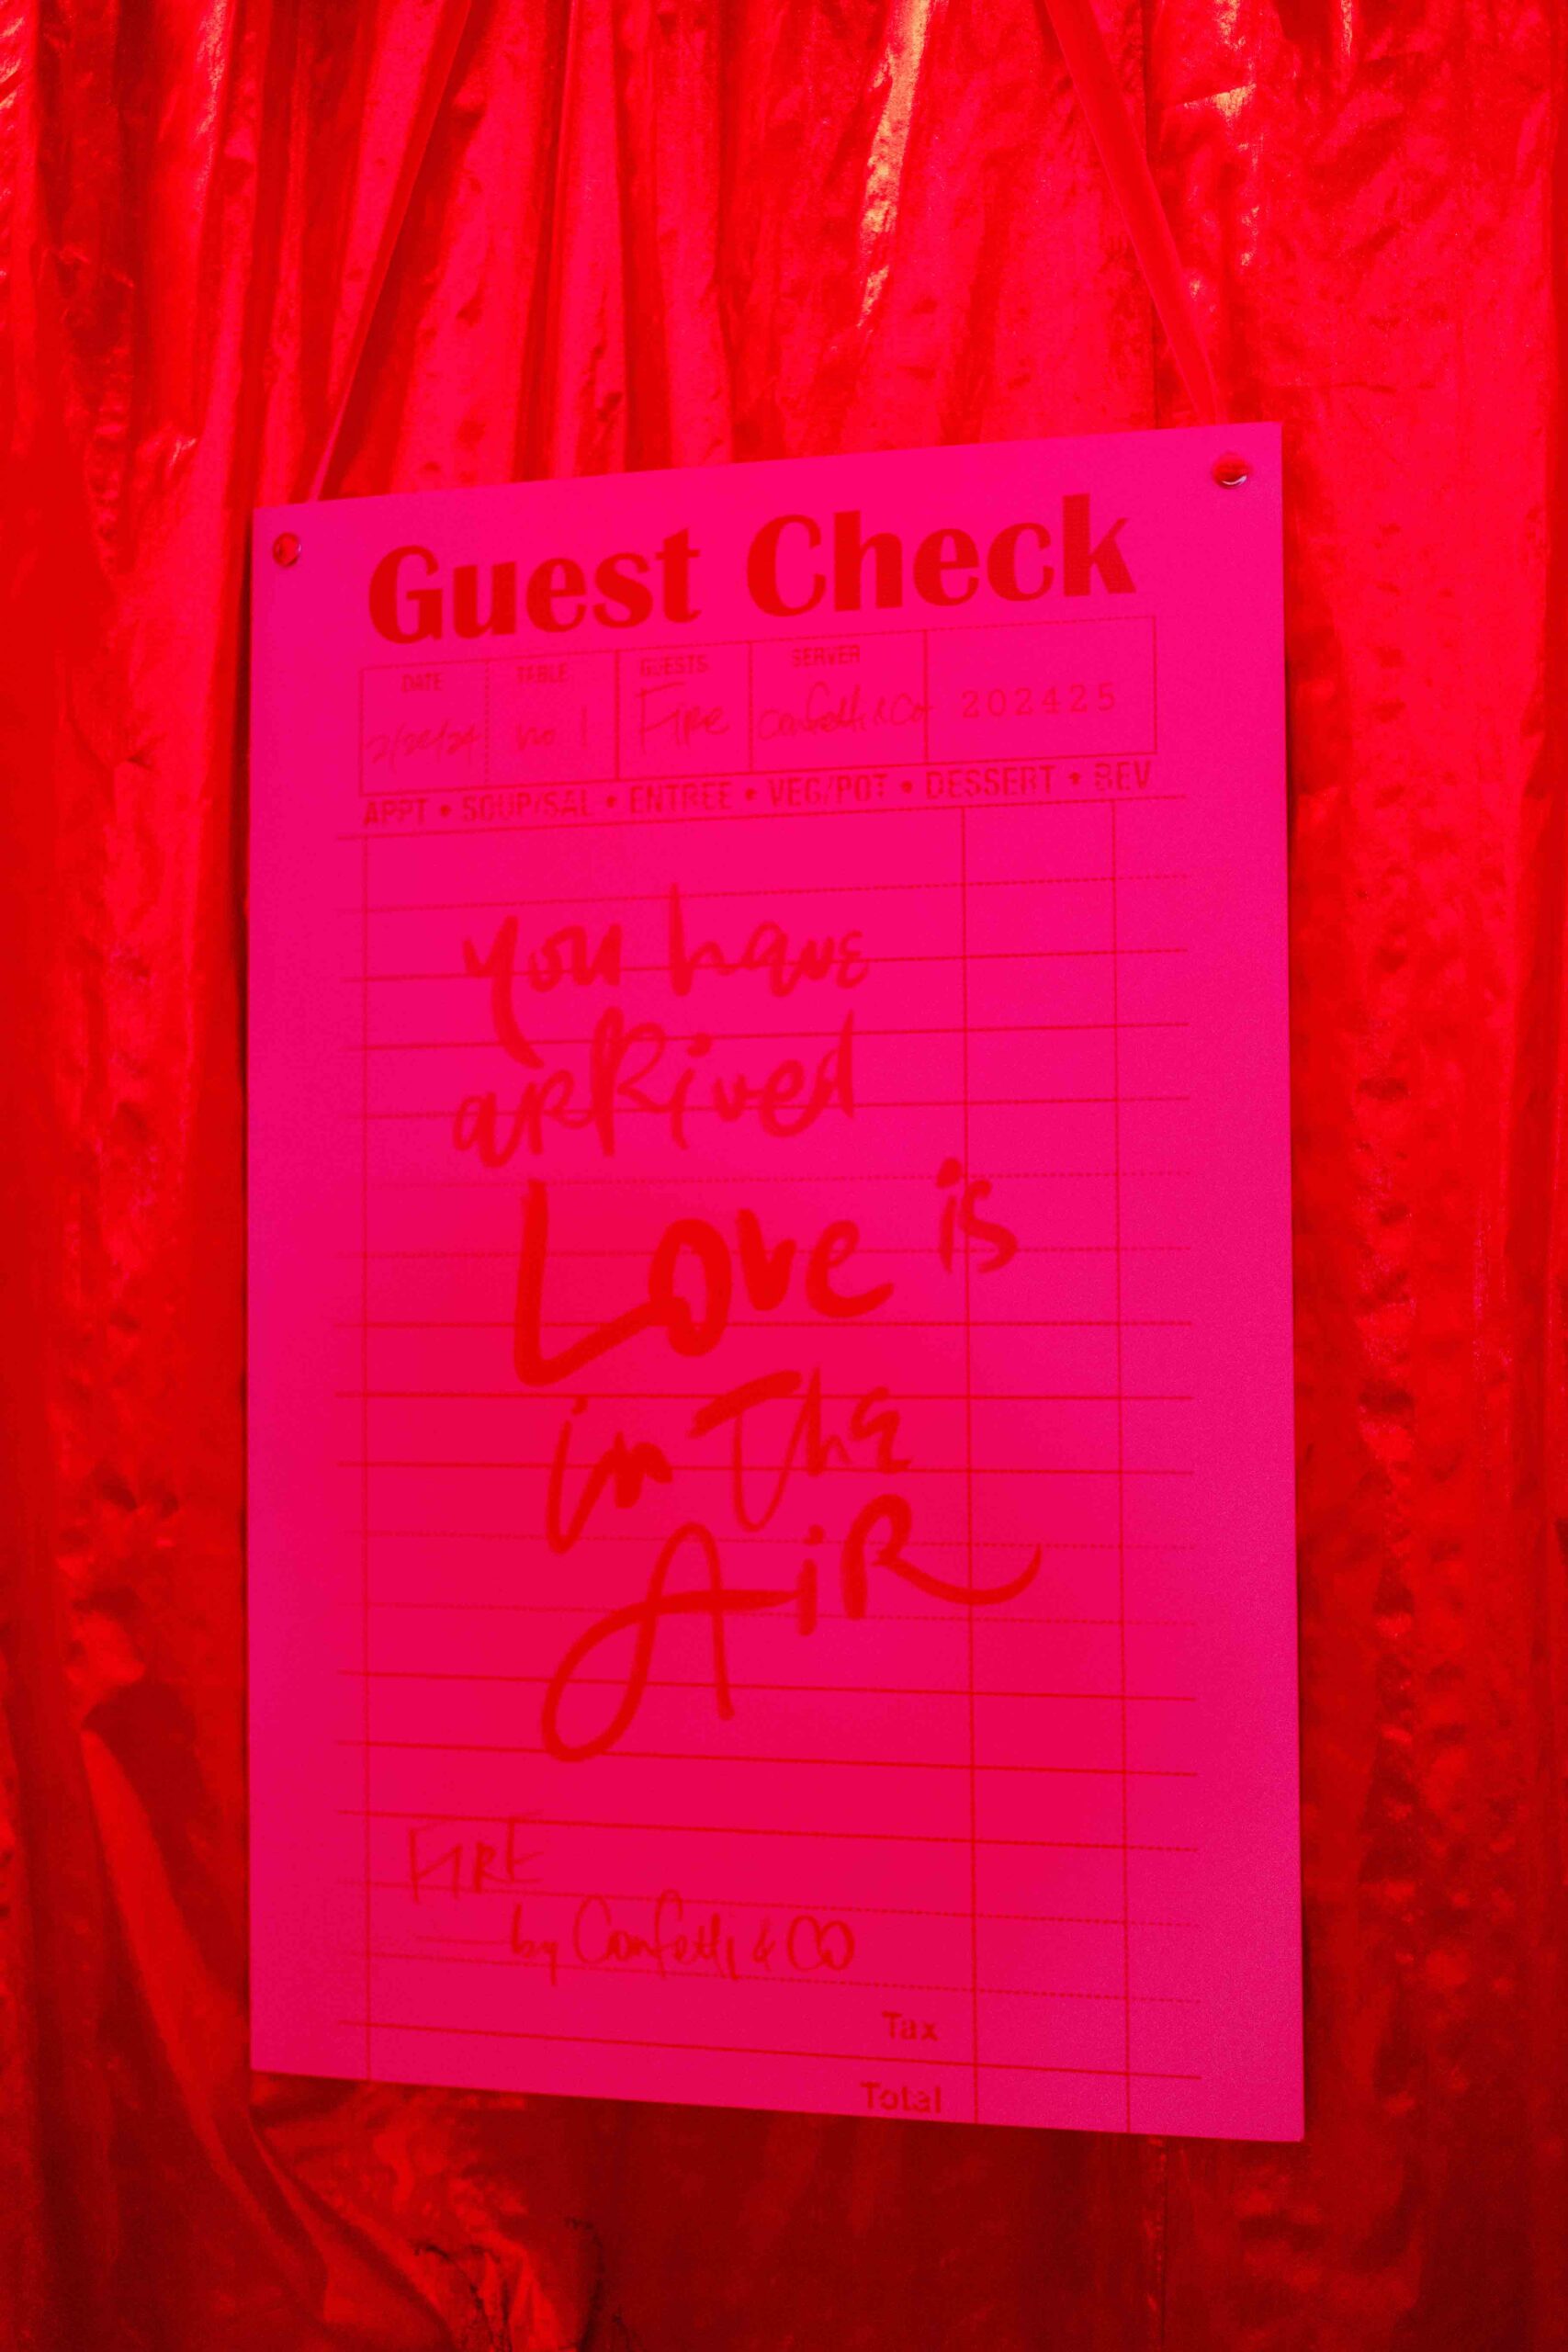 Guest Check
DATE TABLE GUESTS SERVER
no 1 FIRE Confetti & Co 202425
APPT • SOUP/SAL • ENTREE • VEG/POT • DESSERT • BEV
you have
arRived
Love is
in The
AiR
FIRE
by Confetti & CO
Tax
Total